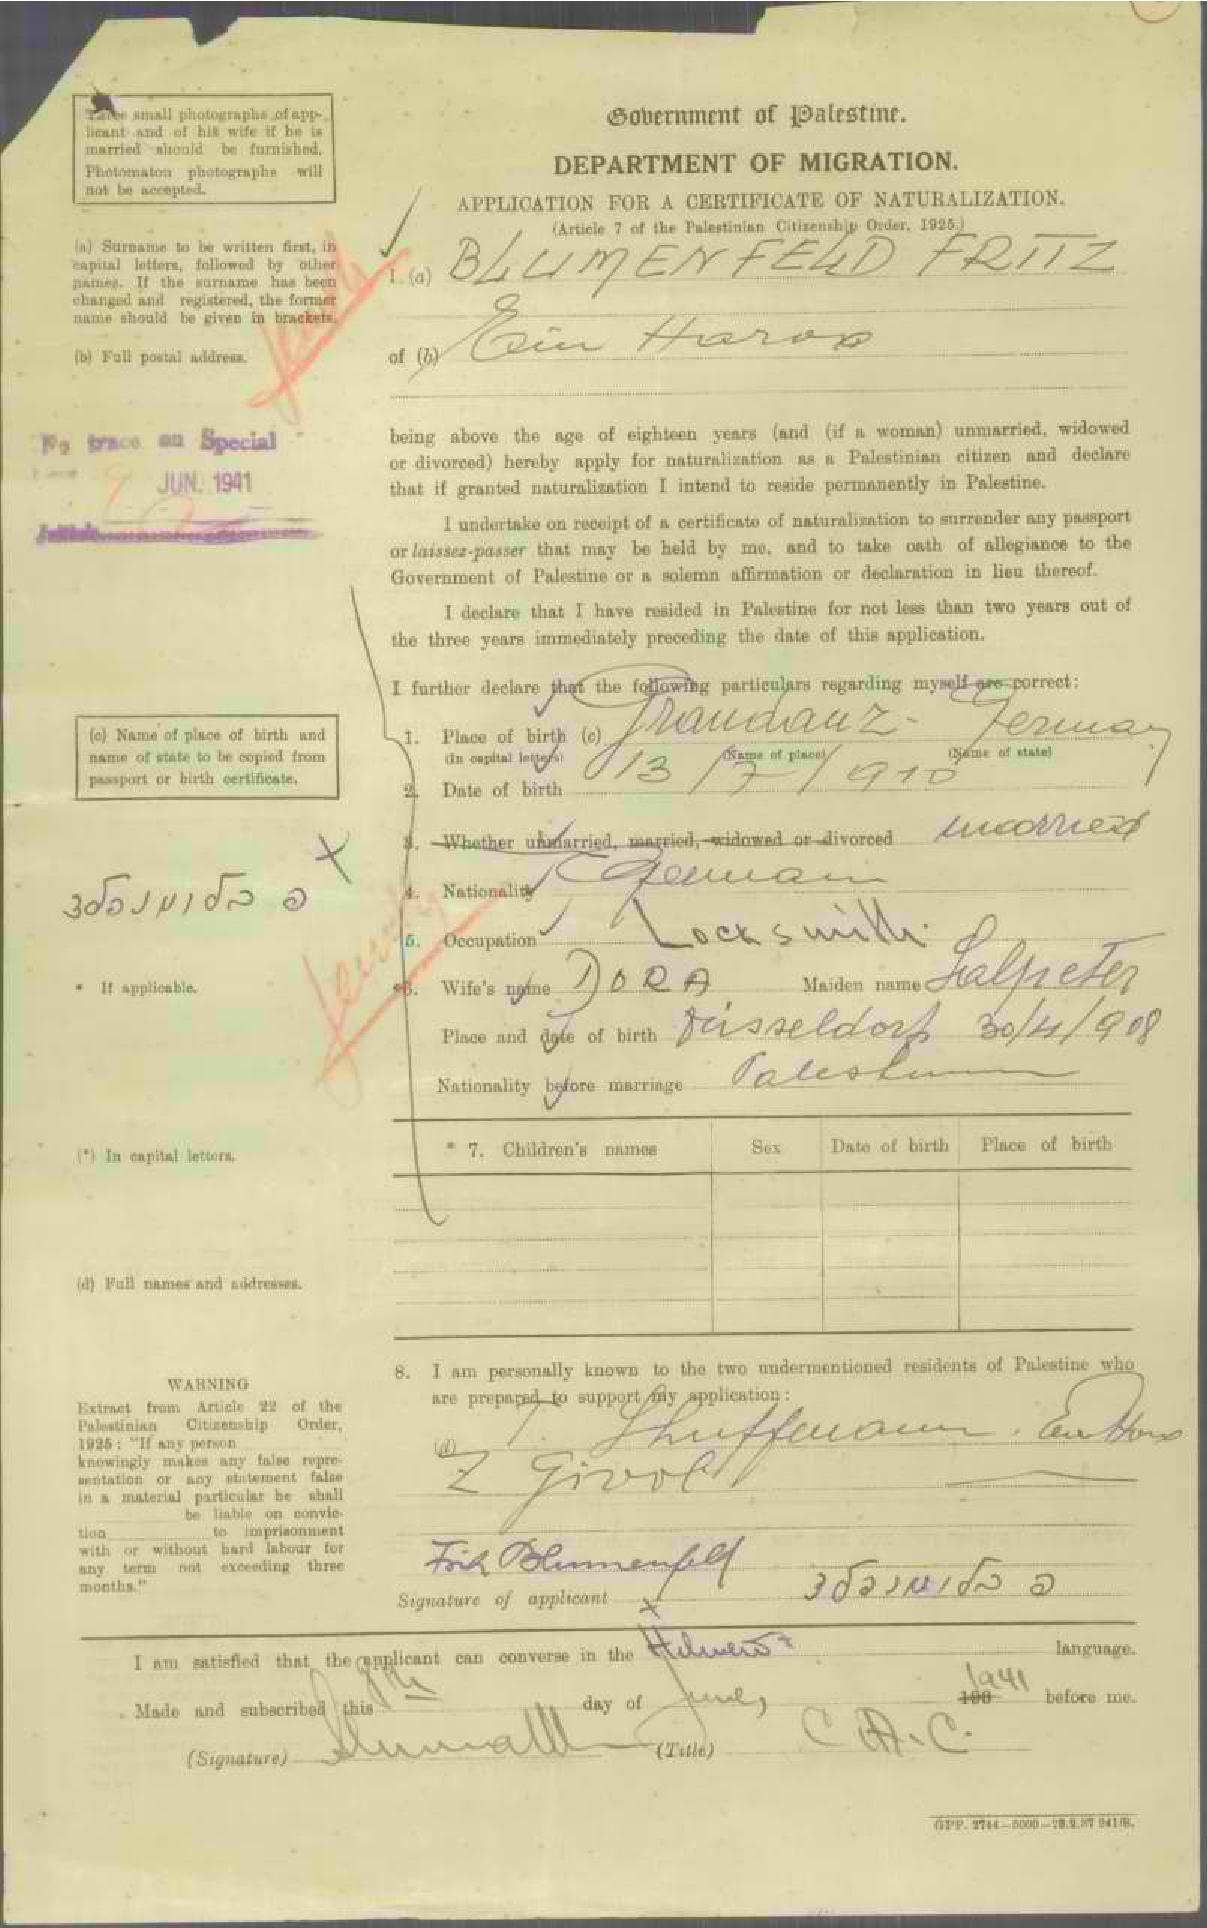 Three small photographs of app-
licant and of his wife if he is
married should be furnished.
Photomaton photographs will
not be accepted.
Government of Palestine.
DEPARTMENT OF MIGRATION.
APPLICATION FOR A CERTIFICATE OF NATURALIZATION.
(Article 7 of the Palestinian Citizenship Order, 1925.)
(a) Surname to be written first, in
capital letters, followed by other
names. If the surname has been
changed and registered, the former
name should be given in brackets.
1. (a) BLUMENFELD FRITZ
(b) Full postal address.
of (b) Ein Harod
No trace on Special
JUN. 1941
being above the age of eighteen years (and (if a woman) unmarried, widowed
or divorced) hereby apply for naturalization as a Palestinian citizen and declare
that if granted naturalization I intend to reside permanently in Palestine.
I undertake on receipt of a certificate of naturalization to surrender any passport
or laissez-passer that may be held by me, and to take oath of allegiance to the
Government of Palestine or a solemn affirmation or declaration in lieu thereof.
I declare that I have resided in Palestine for not less than two years out of
the three years immediately preceding the date of this application.
I further declare that the following particulars regarding myself are correct:
(c) Name of place of birth and
name of state to be copied from
passport or birth certificate.
1. Place of birth (c) Graudanz - Germany
(In capital letters) (Name of place) (Name of state)
2. Date of birth 13/7/910
3. Whether unmarried, married, widowed or divorced married
פ בלומנפלד
4. Nationality German
5. Occupation Locksmith
* If applicable.
*6. Wife's name DORA Maiden name Salpeter
Place and date of birth Düsseldorf 30/4/908
Nationality before marriage Palestinian
(*) In capital letters.
* 7. Children's names Sex Date of birth Place of birth
(d) Full names and addresses.
8. I am personally known to the two undermentioned residents of Palestine who
are prepared to support my application:
(d)
Z Givoli
WARNING
Extract from Article 22 of the
Palestinian Citizenship Order,
1925: "If any person
knowingly makes any false repre-
sentation or any statement false
in a material particular he shall
be liable on convic-
tion to imprisonment
with or without hard labour for
any term not exceeding three
months."
Fritz Blumenfeld
Signature of applicant פ בלומנפלד
I am satisfied that the applicant can converse in the Hebrew language.
Made and subscribed this 9th day of June, 1941 before me.
(Signature) (Title) C.A.C.
GPP. 2744—5000—28.2.37 241/B.